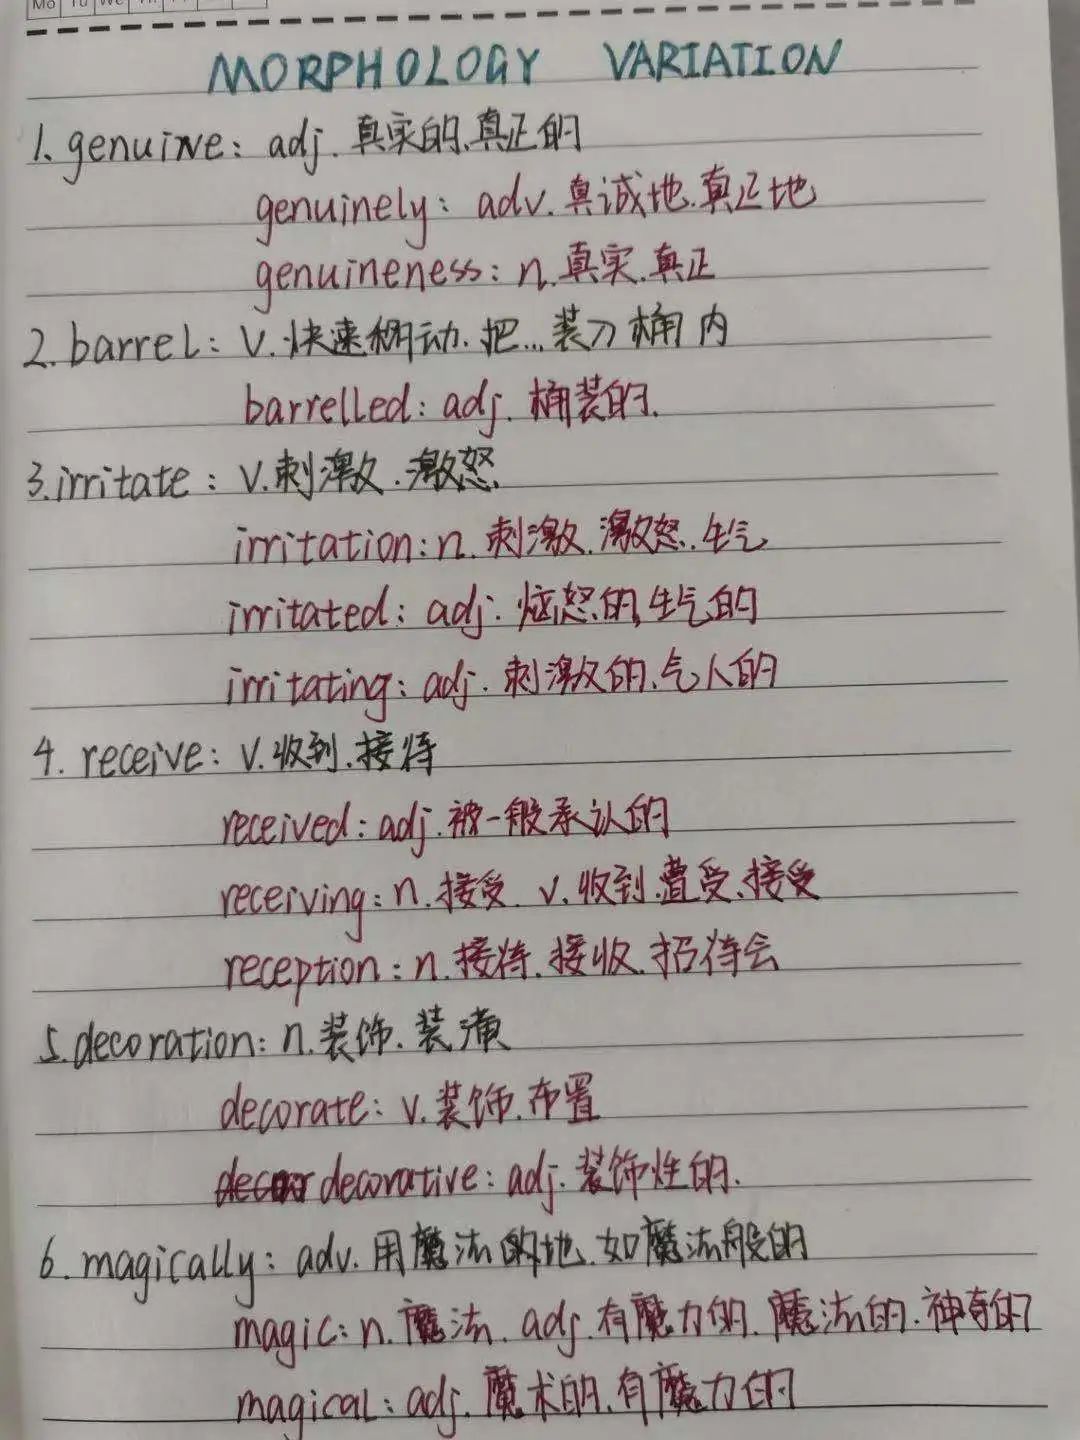 Mo Tu We
MORPHOLOGY VARIATION
1. genuine: adj. 真实的.真正的
genuinely: adv. 真诚地.真正地
genuineness: n. 真实.真正
2. barrel: v. 快速移动. 把...装刀桶内
barrelled: adj. 桶装的.
3. irritate: v. 刺激.激怒
irritation: n. 刺激.激怒.生气
irritated: adj. 恼怒的,生气的
irritating: adj. 刺激的.气人的
4. receive: v. 收到.接待
received: adj. 被一般承认的
receiving: n. 接受. v. 收到.遭受.接受
reception: n. 接待.接收.招待会
5. decoration: n. 装饰.装潢
decorate: v. 装饰.布置
decorative: adj. 装饰性的.
6. magically: adv. 用魔法的地.如魔法般的
magic: n. 魔法. adj. 有魔力的.魔法的.神奇的
magical: adj. 魔术的.有魔力的